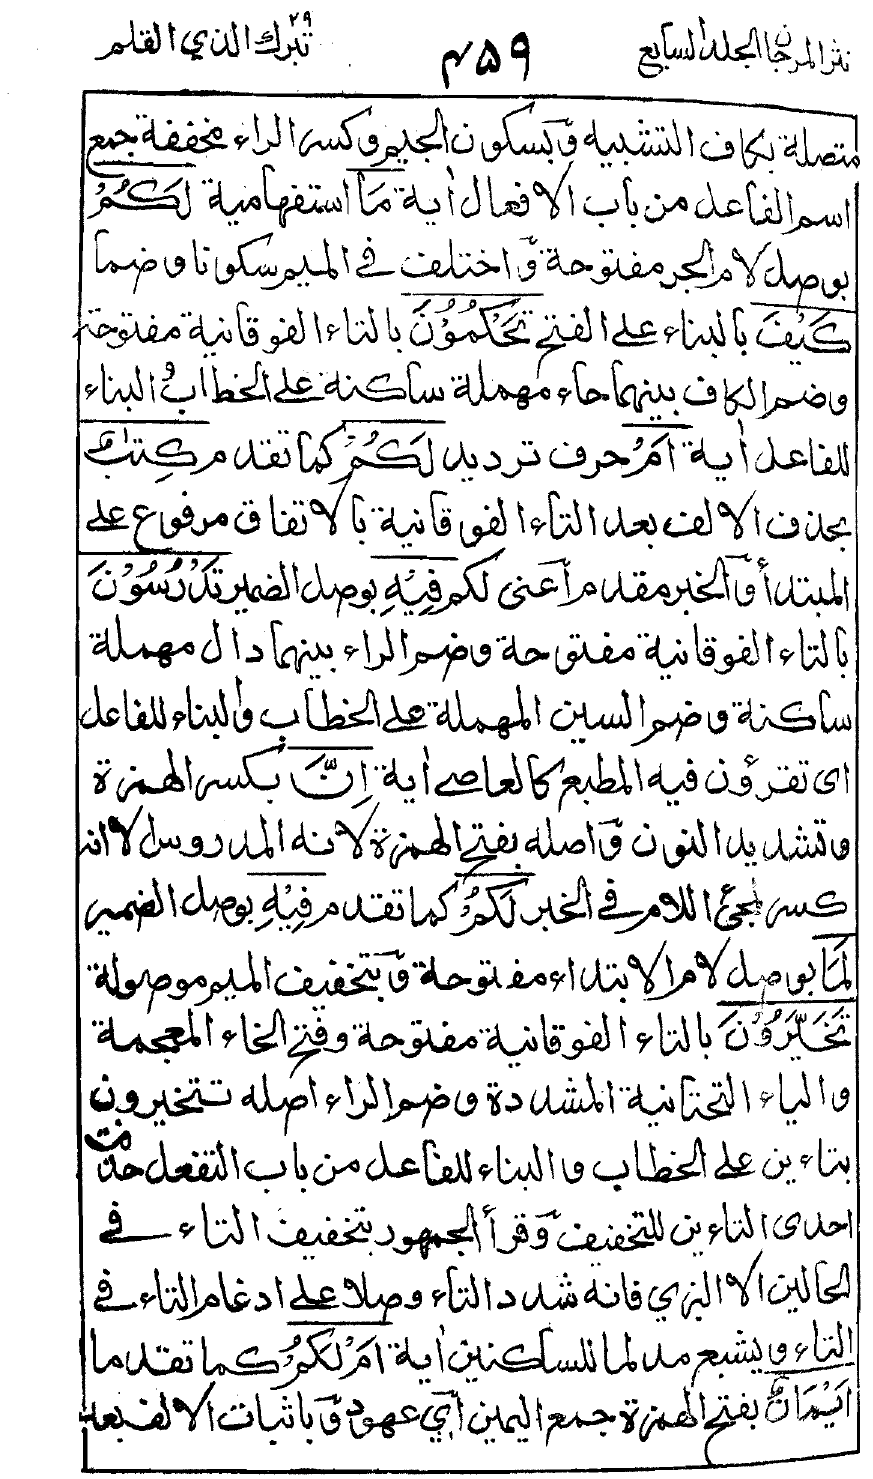 نثر المرجان الجلد السابع ۴۵۹ تبرك الذي ٢٩ القلم
متصلة بكاف التشبيه وَبسكون الجيم وكسر الراء مخففة جمع
اسم الفاعل من باب الافعال اٰية مَا استفهامية لَكُمْ
بوصل لام الجر مفتوحة وَاختلف في الميم سكونا وضما
كَيْفَ بالبناء على الفتح تَحْكُمُوْنَ بالتاء الفوقانية مفتوحة
وضم الكاف بينهما حاء مهملة ساكنة على الخطاب والبناء
للفاعل اٰية اَمْ حرف ترديد لَكُمْ كما تقدم كِتٰبٌ
بحذف الالف بعد التاء الفوقانية بالاتفاق مرفوع على
المبتدأ وَالخبر مقدم أعنى لكم فِيْهِ بوصل الضمير تَدْرُسُوْنَ
بالتاء الفوقانية مفتوحة وضم الراء بينهما دال مهملة
ساكنة وضم السين المهملة على الخطاب والبناء للفاعل
اى تقرؤن فيه المطيع كالعاصے اٰية اِنَّ بكسر الهمزة
وتشديد النون وَاصله بفتح الهمزة لانه المدروس لا انه
كسر لمجئ اللام في الخبر لَكُمْ كما تقدم فِيْهِ بوصل الضمير
لَمَا بوصل لام الابتداء مفتوحة وَبتخفيف الميم موصولة
تَخَيَّرُوْنَ بالتاء الفوقانية مفتوحة وفتح الخاء المعجمة
والياء التحتانية المشددة وضم الراء اصله تتخيرون
بتاءين على الخطاب والبناء للفاعل من باب التفعل حذفت
احدى التاءين للتخفيف وَقرأ الجمهور بتخفيف التاء في
الحالين الا البزي فانه شدد التاء وصلا على ادغام التاء في
التاء ويشبع مد لما للساكنين اٰية اَمْ لَكُمْ كما تقدم ما
اَيْمَانٌ بفتح الهمزة جمع اليمين اي عهود وَباثبات الالف بعد